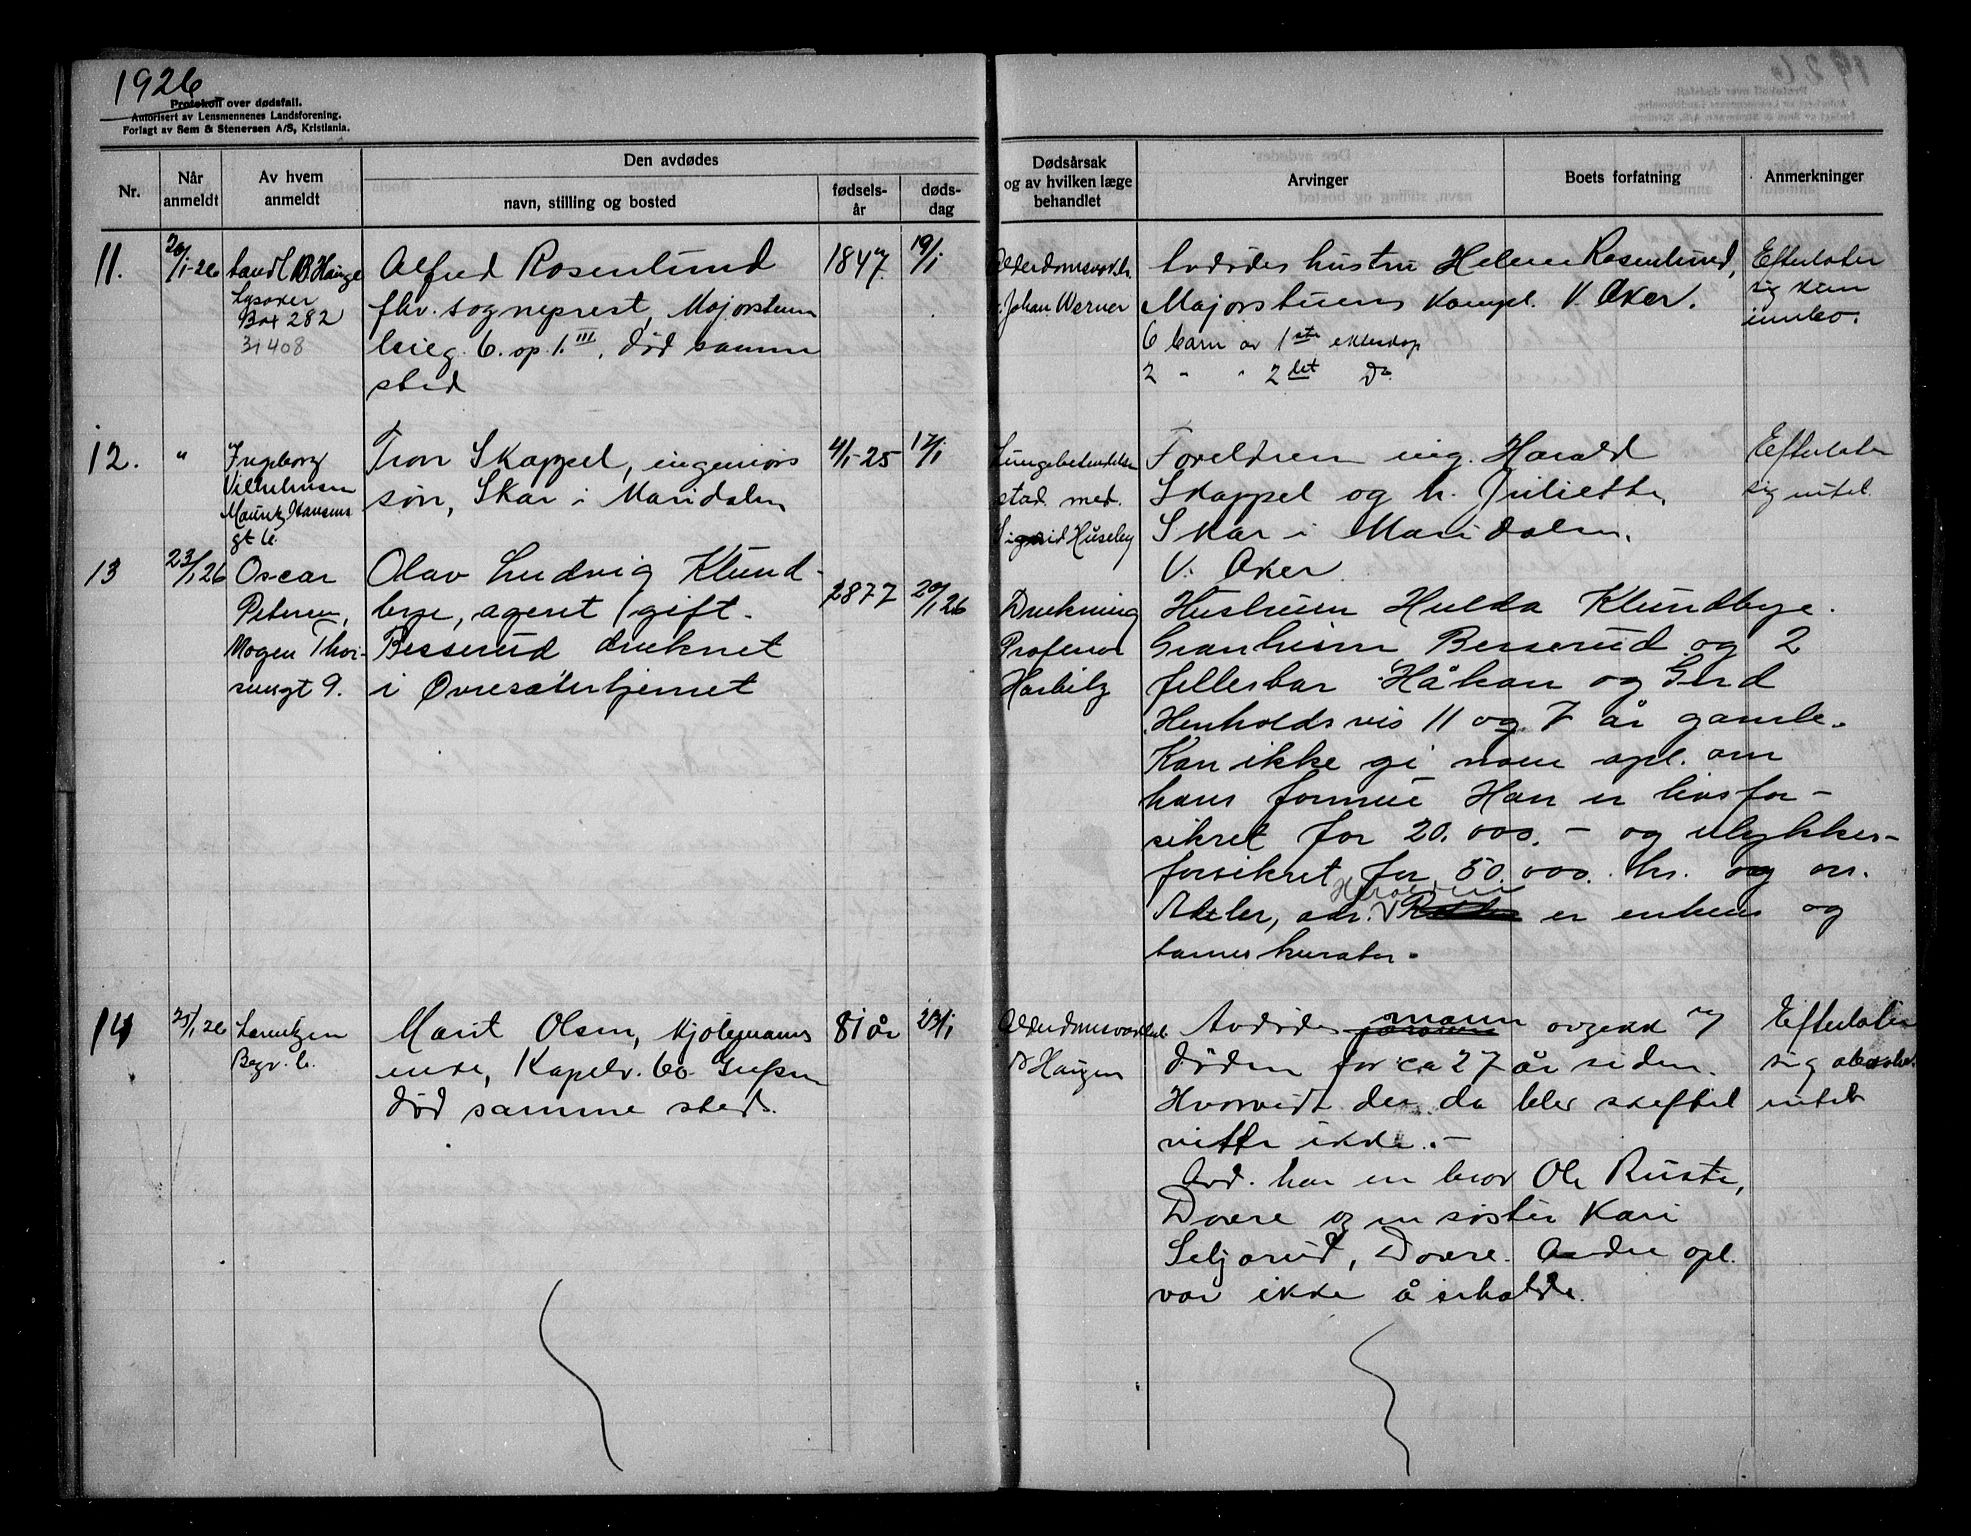 1926
Protokoll over dødsfall.
Autorisert av Lensmennenes Landsforening.
Forlagt av Sem & Stenersen A/S, Kristiania.
Nr.
Når anmeldt
Av hvem anmeldt
Den avdødes
navn, stilling og bosted
fødsels-år
døds-dag
Dødsårsak
og av hvilken læge
behandlet
Arvinger
Boets forfatning
Anmerkninger
11.
20/1-26
Hauge
Lysaker
Box 282
31408
Alfred Rosenlund
fhv. sogneprest, Majorstuen
6. op. 1. III, død samme
sted
1847
19/1
Alderdomssvakh.
Johan Werner
Avdødes hustru Helene Rosenlund,
Majorstuens Kompl. V. Aker.
6 barn av 1ste ekteskap
2 " " 2det Do.
Efterlater
sig kun
innbo.
12.
"
Ingeborg
Vilhelmsen
Mauritz Hansens
gt 6.
Tron Skappel, ingeniørs
søn, Skar i Maridalen
4/1-25
17/1
Lungebetendelse
stad. med.
Sigrid Huseby
Foreldrene ing. Harald
Skappel og h. Juliette,
Skar i Maridalen.
V. Aker
Efterlater
sig intet.
13
23/1 26
Oscar
Petersen,
Mogen Thor-
sengt 9.
Olav Ludvig Klund-
bye, agent, gift.
Besserud druknet
i Øvresætertjernet
1877
20/1 26
Drukning
Professor
Harbitz
Hustruen Hulda Klundbye.
Granheim Besserud og 2
fellesbar Håkon og Gerd
Henholdsvis 11 og 7 år gamle.
Kan ikke gi noen opl. om
hans formue Han er livsfor-
sikret for 20.000.- og ulykkes-
forsikret for 50.000. kr. og
Adeler, adr. er enkens og
barnes kurator.
14
25/1 26
Lorentzen
Begr. b.
Marit Olsen, Hjølemanns
enke, Kapelv. 60. Grefsen
død samme sted.
81 år
23/1
Alderdomssvakhet
Dr Haugen
Avdødes mann avgikk v/
døden for ca 27 år siden.
Hvorvidt der da blev skiftet
vites ikke.-
Avd. har en bror Ole Ruste,
Dovre og en søster Kari
Seljorud, Dovre. Andre opl.
var ikke å erholde.
Efterlater
sig
intet